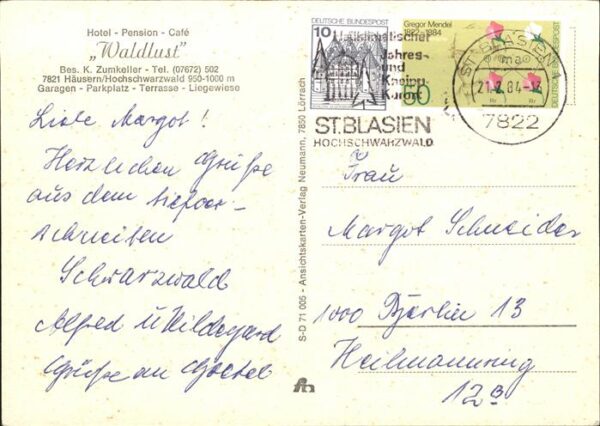 Hotel - Pension - Café
„Waldlust"
Bes. K. Zumkeller - Tel. (07672) 502
7821 Häusern/Hochschwarzwald 950-1000 m
Garagen - Parkplatz - Terrasse - Liegewiese
Liebe Margot!
Herzlichen Grüße
aus dem tiefver-
schneiten
Schwarzwald
Alfred u Hildegard
Grüße an
S-D 71 005 - Ansichtskarten-Verlag Neumann, 7850 Lörrach
DEUTSCHE BUNDESPOST
10
Gregor Mendel
1822-1884
50
DEUTSCHE BUNDESPOST
Heilklimatischer
Jahres-
und
Kneipp-
Kurort
ST. BLASIEN
HOCHSCHWARZWALD
ST. BLASIEN
ma
7822
Frau
Margot Schneider
1000 Berlin 13
Heilmannring
12B